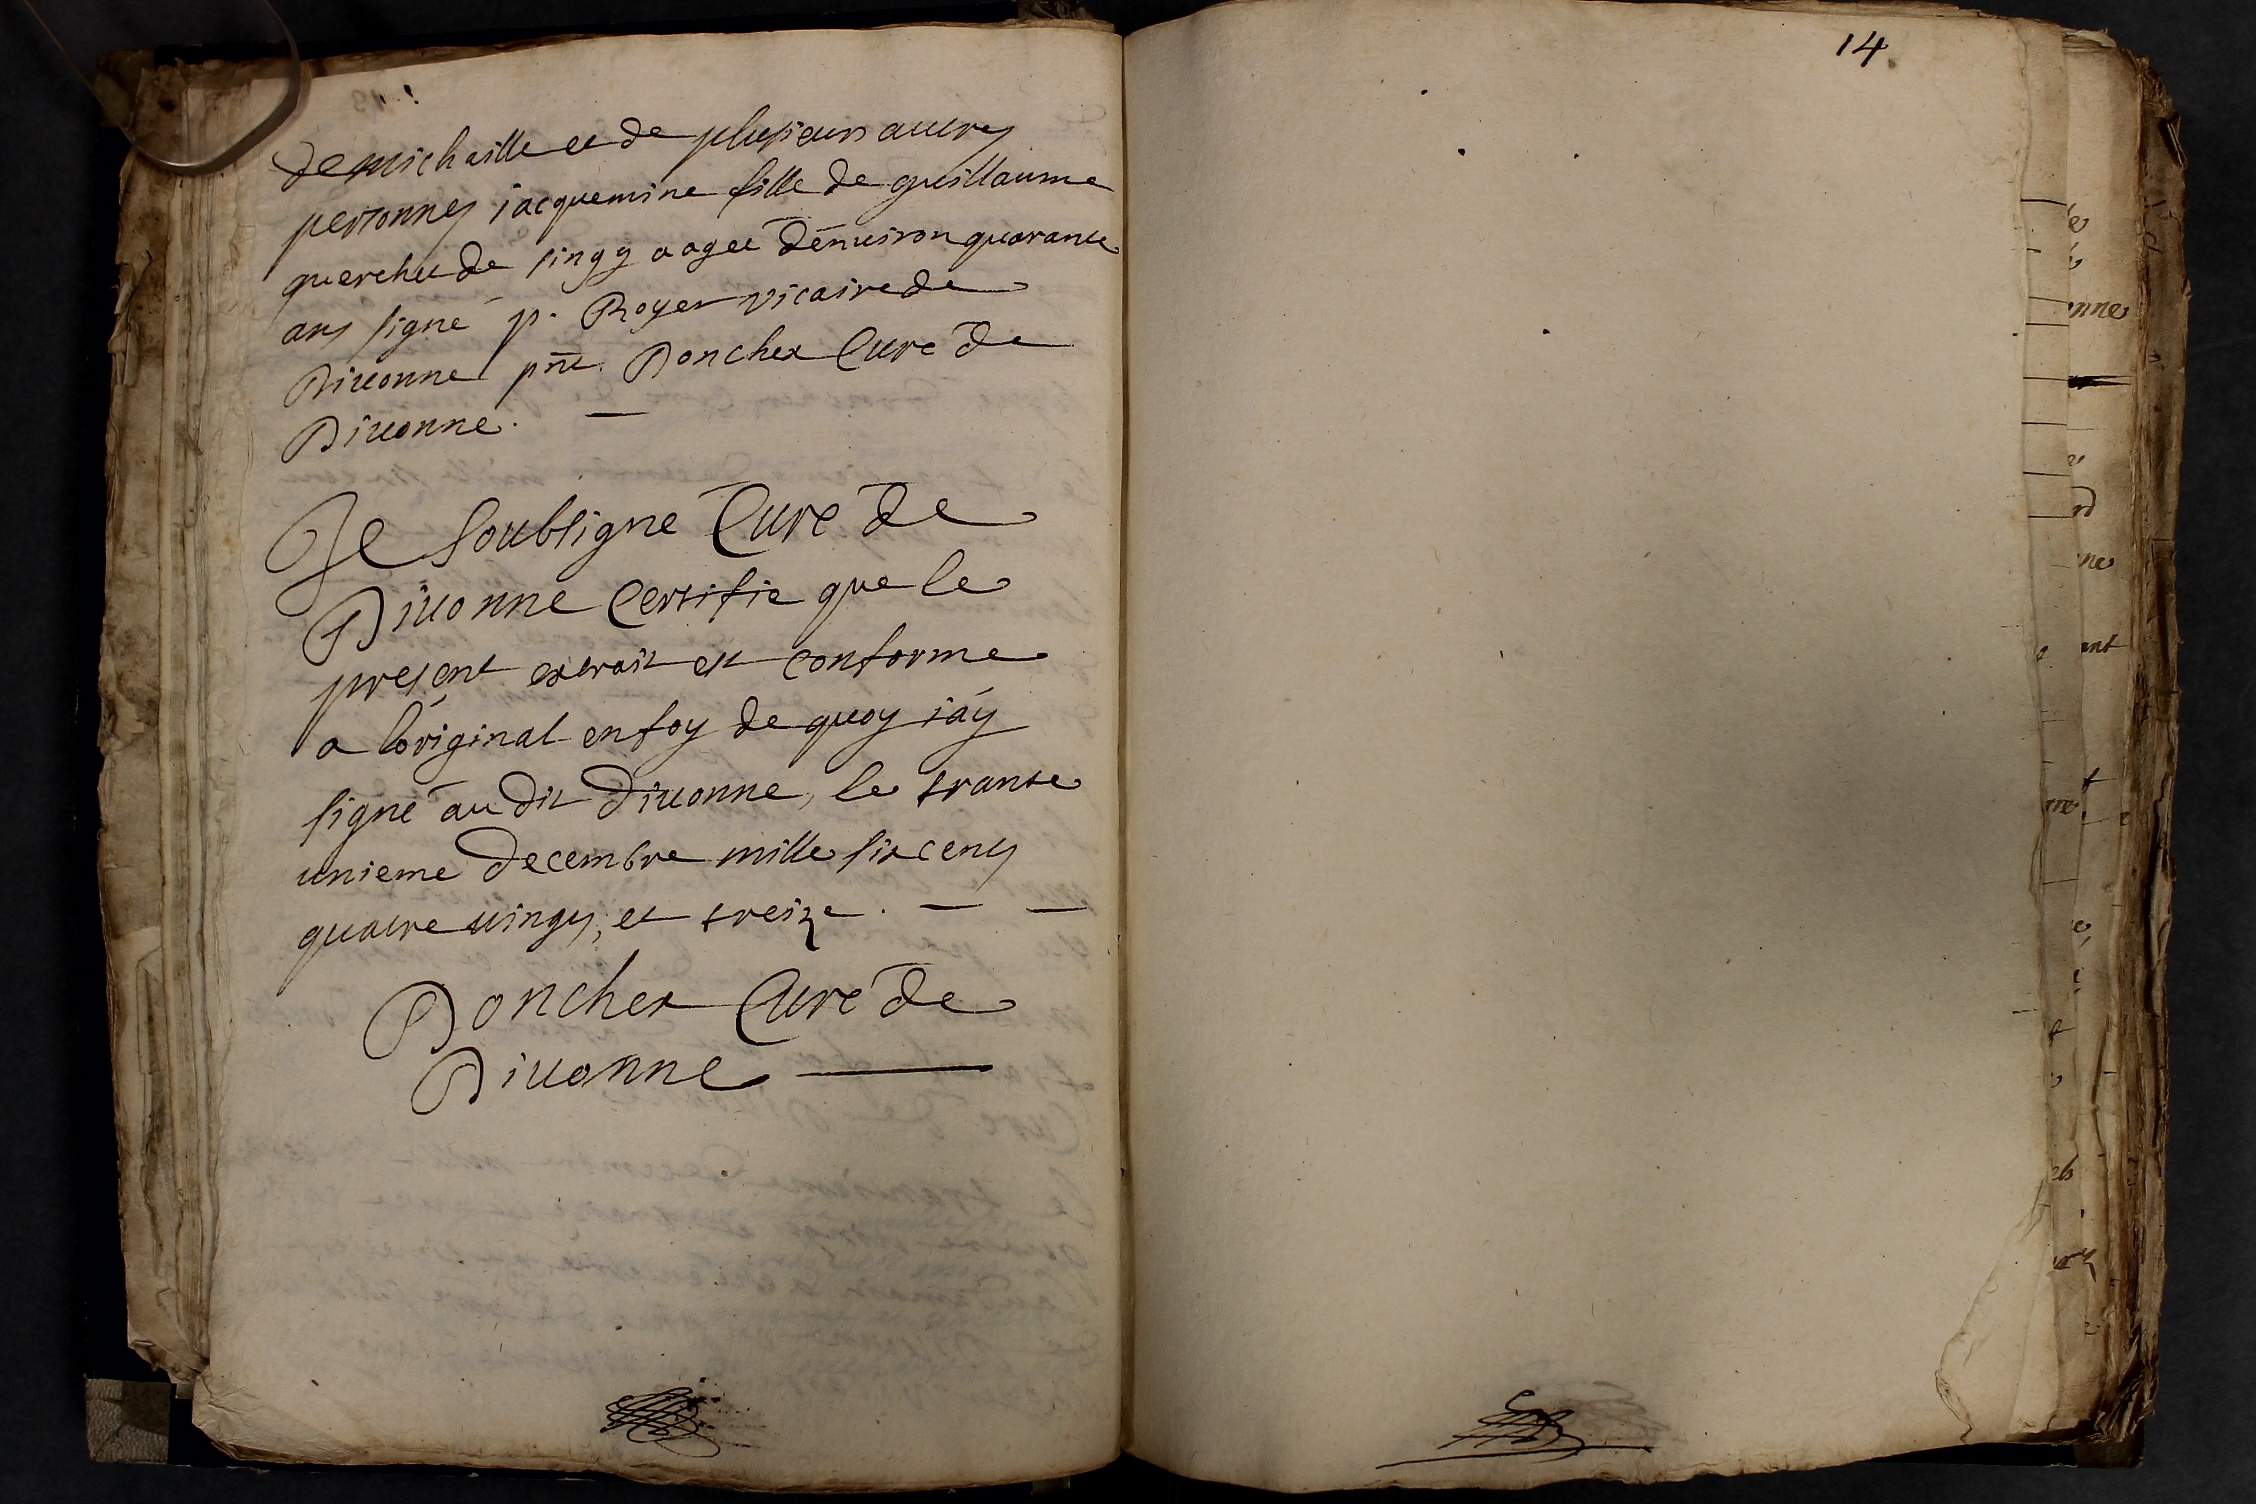 de michaille et de plusieurs autres
personnes jacquemine fille de guillaume
querchet de singy aagee d'enuiron quarante
ans signé p. Royer vicaire de
Diuonne pnt. Doncher Curé de
Diuonne.
Je soubsigne Curé de
Diuonne Certifie que le
present extrait est conforme
a l'original en foy de quoy j'ay
signé au dit Diuonne, le trante
unieme decembre mille six cens
quatre uingts, et treize.
Doncher Curé de
Diuonne
14